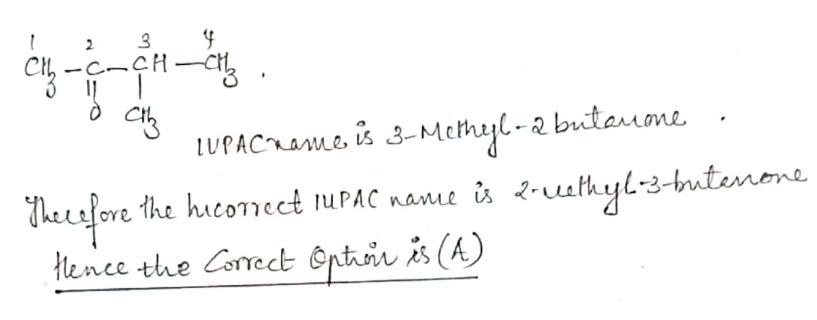 1 2 3 4
CH3 - C - CH - CH3 .
O CH3
IUPAC name is 3-Methyl-2 butanone .
Therefore the Incorrect IUPAC name is 2-methyl-3-butanone
Hence the Correct Option is (A)